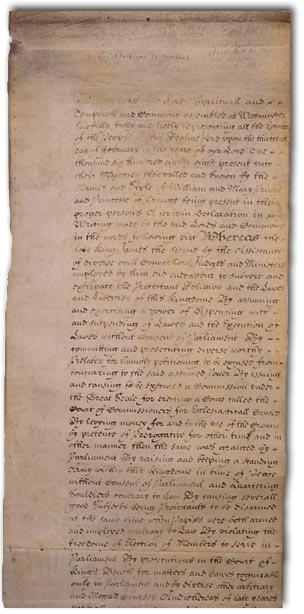 Lords Spirituall and
Temporall and Commons assembled at Westminster
Lawfully fully and freely representing all the Estates
of the People of this Realme did upon the
day of February in the yeare of our Lord One
thousand six hundred eighty eight present unto
their Majesties then called and known by the
Names and Style of William and Mary Prince
and Princesse of Orange being present in their
proper persons A certain Declaration in
Writing made by the said Lords and Commons
in the words following viz Whereas the
late King James the Second by the Assistance
of diverse evill Councellors Judges and Ministers
imployed by him did endeavour to subvert and
extirpate the Protestant Religion and the Lawes
and Liberties of this Kingdome By assuming
and exercising a power of Dispensing with
and suspending of Lawes and the Execution of
Lawes without Consent of Parliament By
committing and prosecuting diverse worthy
Prelates for humbly petitioning to be excused from
concurring to the said assumed Power By issuing
and causing to be executed a Commission under
the Great Seale for erecting a Court called the
Court of Commissioners for Ecclesiasticall Causes
By levying money for and to the use of the Crowne
by pretence of Prerogative for other time and in
other manner then the same was granted by
Parliament By raising and keeping a standing
Army within this Kingdome in time of Peace
without Consent of Parliament and Quartering
Souldiers contrary to Law By causing severall
good Subjects being Protestants to be disarmed
at the same time when Papists were both armed
and imployed contrary to Law By violating the
freedome of Election of Members to serve in
Parliament By prosecutions in the Court of
Kings Bench for matters and causes cognizable
only in Parliament and by diverse other arbitrary
and illegall Courses And whereas of late yeares